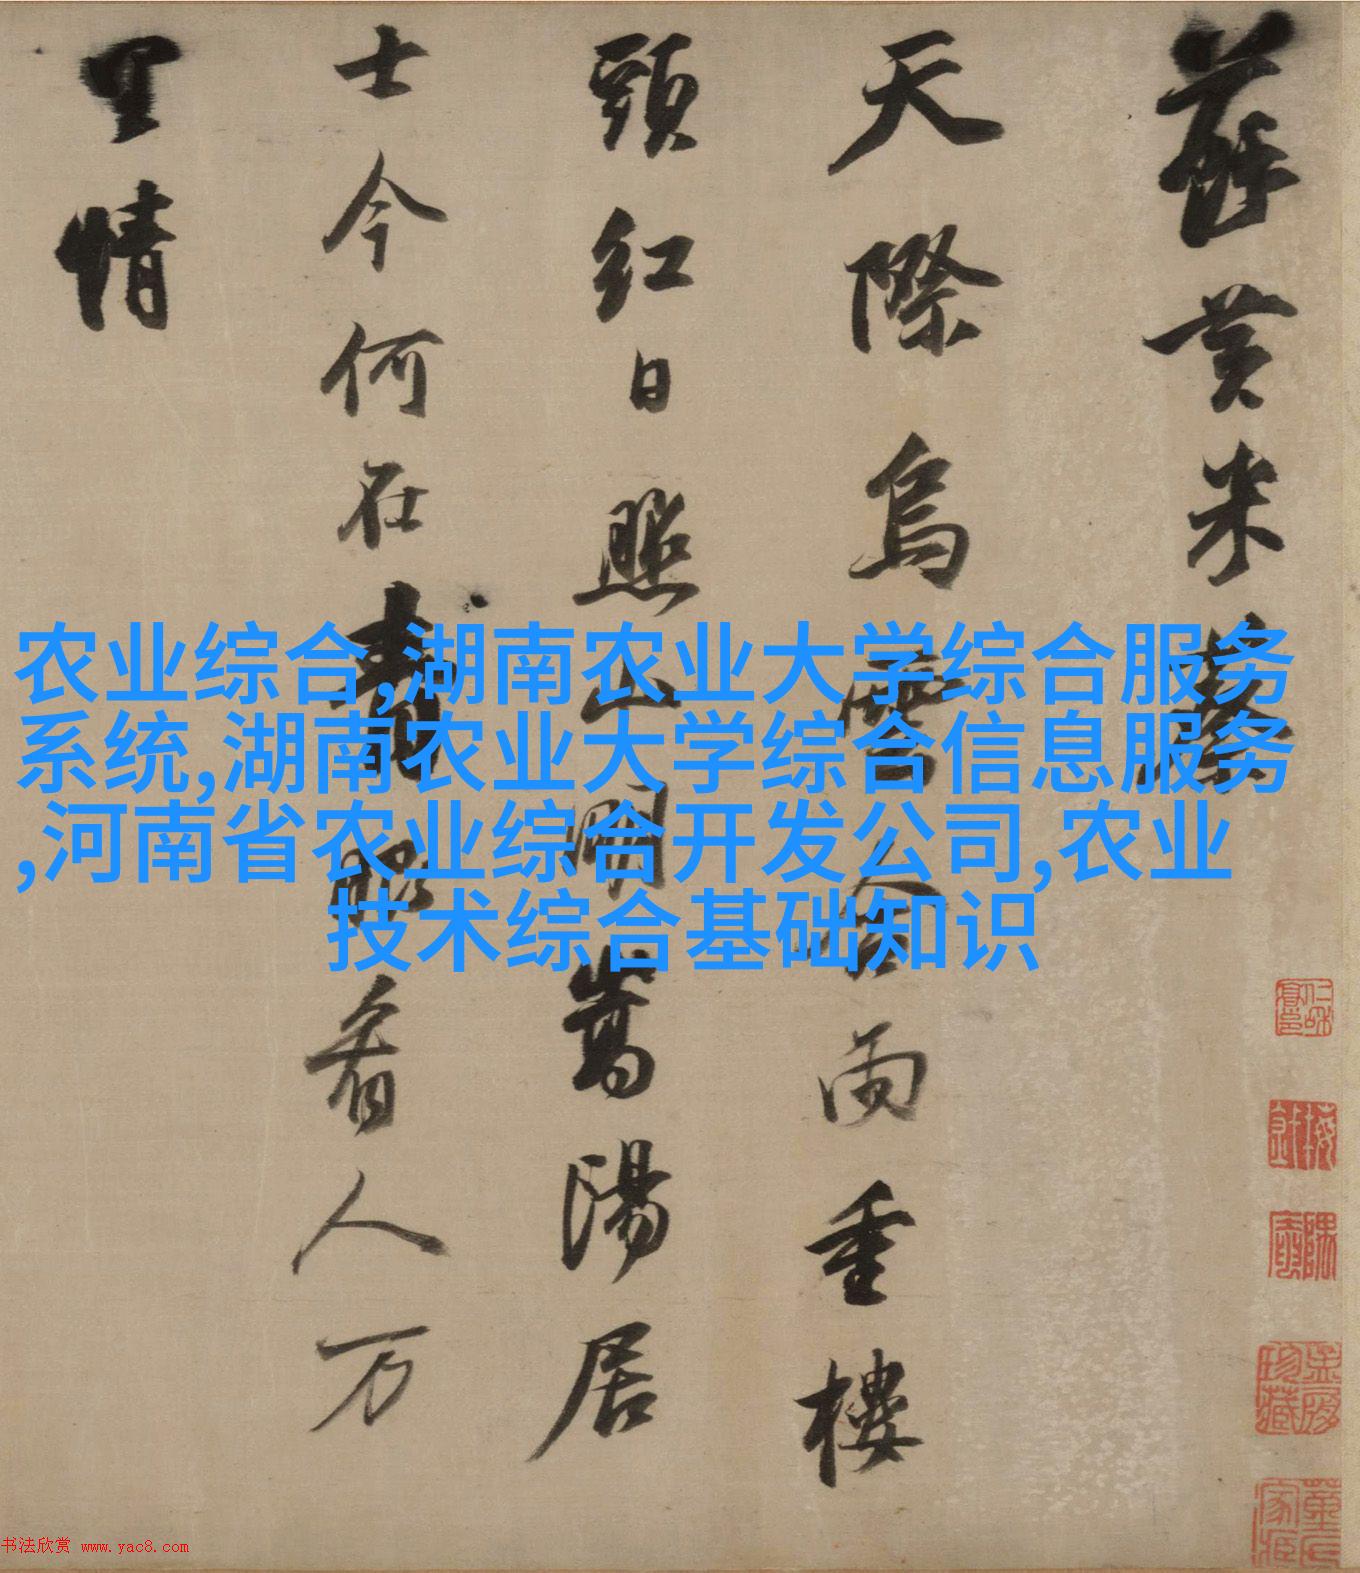 蘇黄米蔡
天際烏雲含雨重樓
頭紅日照山明嵩陽居
士今何在青眼看人万
里情
农业综合,湖南农业大学综合服务
系统,湖南农业大学综合信息服务
,河南省农业综合开发公司,农业
技术综合基础知识
书法欣赏 www.yac8.com